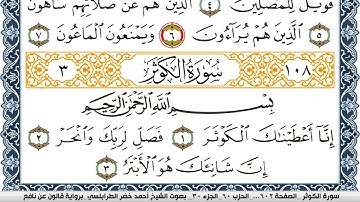 فَوَيْلٌ لِّلْمُصَلِّينَ ٤ الَّذِينَ هُمْ عَن صَلَاتِهِمْ سَاهُونَ
٥ الَّذِينَ هُمْ يُرَآءُونَ ٦ وَيَمْنَعُونَ الْمَاعُونَ ٧
٣ سُورَةُ الْكَوْثَرِ ١٠٨
بِسْمِ اللَّهِ الرَّحْمَٰنِ الرَّحِيمِ
إِنَّا أَعْطَيْنَاكَ الْكَوْثَرَ ١ فَصَلِّ لِرَبِّكَ وَانْحَرْ ٢
إِنَّ شَانِئَكَ هُوَ الْأَبْتَرُ ٣
سورة الكوثر الصفحة ٦٠٢... الحزب ٦٠ الجزء ٣٠. بصوت الشيخ أحمد خضر الطرابلسي برواية قالون عن نافع